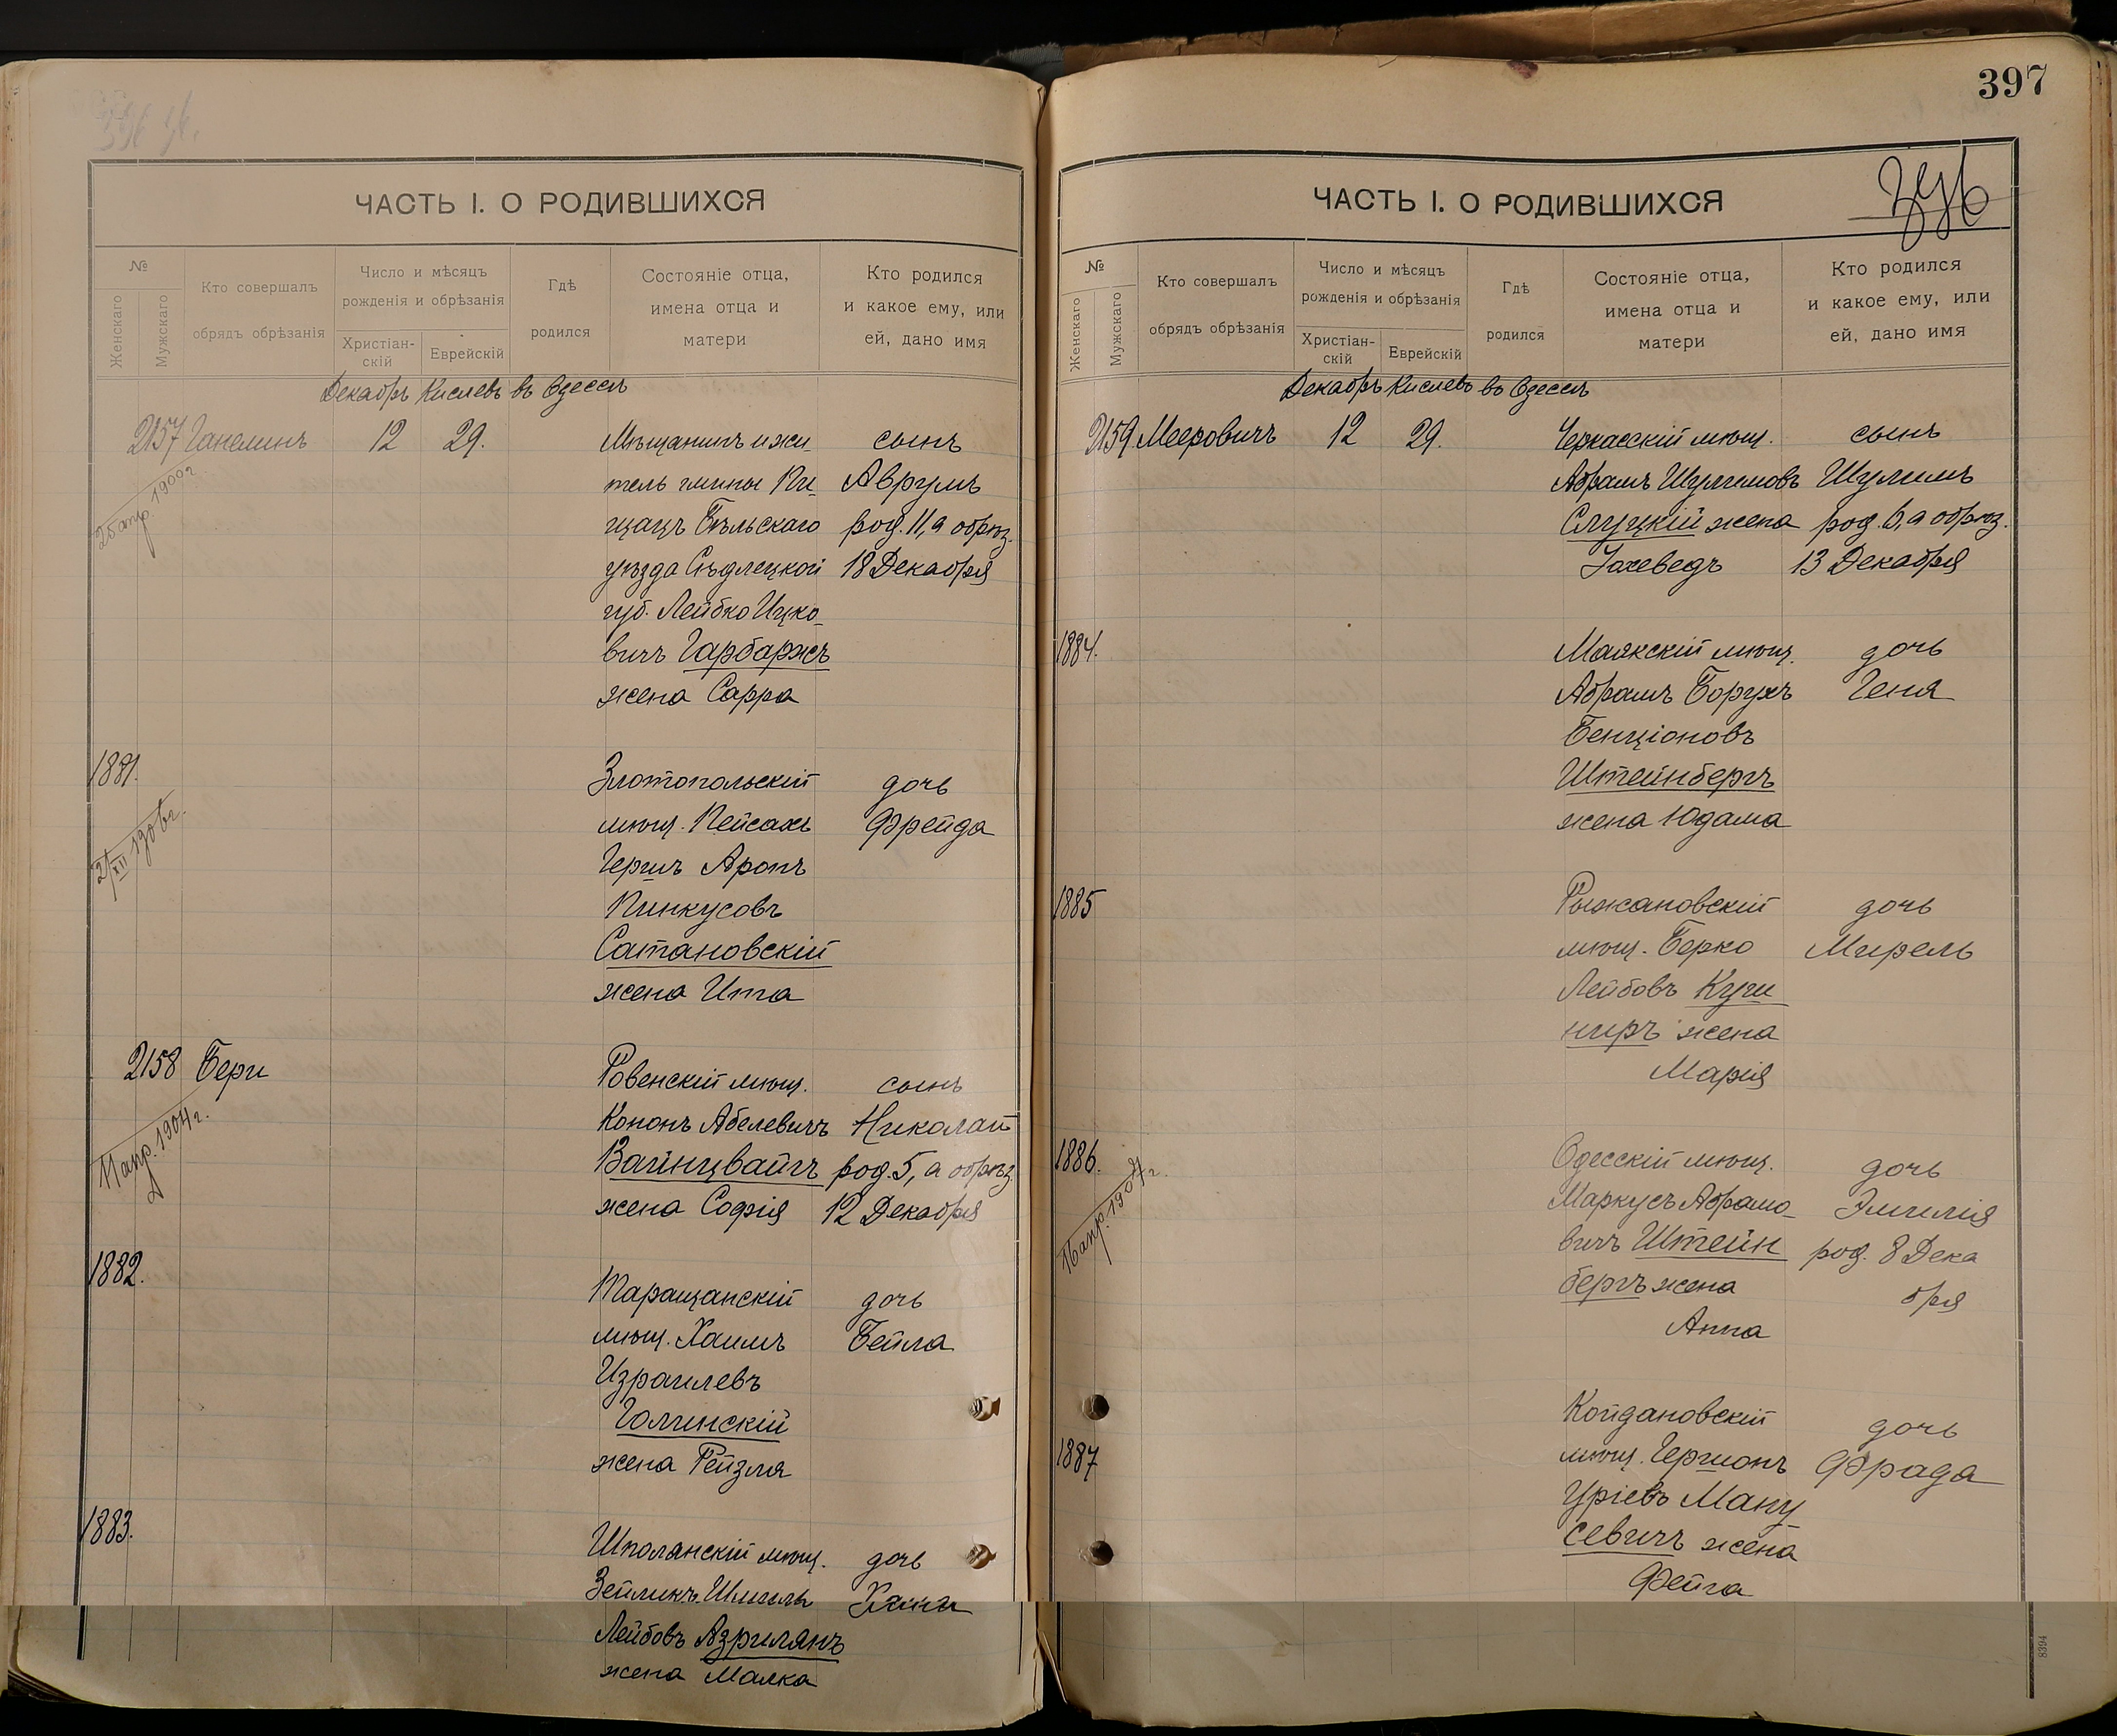 ЧАСТЬ I. О РОДИВШИХСЯ
№
Женскаго
Мужскаго
Кто совершалъ
обрядъ обрѣзанія
Число и мѣсяцъ
рожденія и обрѣзанія
Христіан-
скій
Еврейскій
Гдѣ
родился
Состояніе отца,
имена отца и
матери
Кто родился
и какое ему, или
ей, дано имя
Декабрь Кислевъ въ Одессѣ
2157 Ганелинъ 12 29. Мѣщанинъ и жи- сынъ
25 апр. 1900 г.
тель гмины Пи- Аврумъ
щацъ Бѣльскаго род. 11, а обрѣз.
уѣзда Сѣдлецкой 18 Декабря
губ. Лейбко Ицко-
вичъ Гарбаржъ
жена Сарра
1881. Злотопольскій дочь
мѣщ. Пейсахъ Фрейда
Гершъ Аронъ
Пинкусовъ
Сатановскій
жена Ита
2158 Бери Ровенскій мѣщ. сынъ
11 апр. 1904 г.
Кононъ Абелевичъ Николай
Вайнцвайгъ род. 5, а обрѣз.
жена Софія 12 Декабря
1882. Таращанскій дочь
мѣщ. Хаимъ Бейла
Израилевъ
Голчинскій
жена Рейзля
1883. Шполянскій мѣщ. дочь
Зейликъ Шмиль Хана
Лейбовъ Азрилянъ
жена Малка
397
ЧАСТЬ I. О РОДИВШИХСЯ
№
Женскаго
Мужскаго
Кто совершалъ
обрядъ обрѣзанія
Число и мѣсяцъ
рожденія и обрѣзанія
Христіан-
скій
Еврейскій
Гдѣ
родился
Состояніе отца,
имена отца и
матери
Кто родился
и какое ему, или
ей, дано имя
Декабрь Кислевъ въ Одессѣ
2159 Мееровичъ 12 29. Черкасскій мѣщ. сынъ
Абрамъ Шулимовъ Шулимъ
Слуцкій жена род. 6, а обрѣз.
Іохеведъ 13 Декабря
1884. Маякскій мѣщ. дочь
Абрамъ Борухъ Геня
Бенціоновъ
Штейнбергъ
жена Юдама
1885 Рыжановскій дочь
мѣщ. Берко Мирель
Лейбовъ Куши
ниръ жена
Марія
1886. Одесскій мѣщ. дочь
Маркусъ Абрамо- Эмилія
вичъ Штейн род. 8 Дека
бергъ жена бря
Анна
1887 Койдановскій дочь
мѣщ. Гершонъ Фрада
Уріевъ Ману
севичъ жена
Фейга
8394